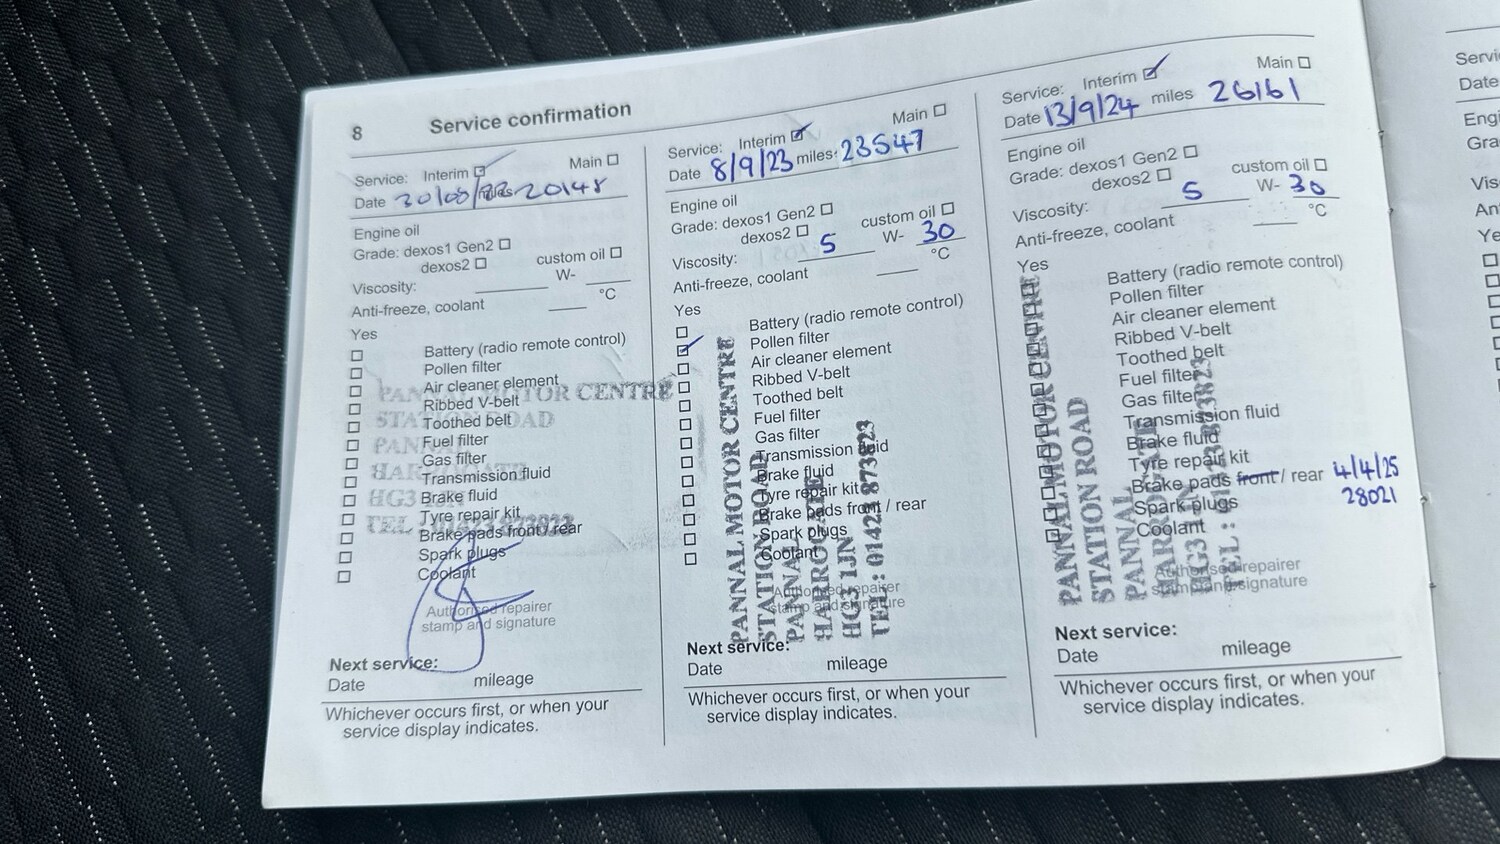 8 Service confirmation
Service: Interim Main
Date 30/08/ 20148
Engine oil
Grade: dexos1 Gen2
dexos2 custom oil
Viscosity: W-
Anti-freeze, coolant °C
Yes
Battery (radio remote control)
Pollen filter
Air cleaner element
Ribbed V-belt
Toothed belt
Fuel filter
Gas filter
Transmission fluid
Brake fluid
Tyre repair kit
Brake pads front / rear
Spark plugs
Coolant
PANNAL MOTOR CENTRE
STATION ROAD
PANNAL
HG3
TEL
Authorised repairer
stamp and signature
Next service:
Date mileage
Whichever occurs first, or when your
service display indicates.
Service: Interim Main
Date 8/9/23 miles: 23547
Engine oil
Grade: dexos1 Gen2
dexos2 custom oil
Viscosity: 5 W- 30
Anti-freeze, coolant °C
Yes
Battery (radio remote control)
Pollen filter
Air cleaner element
Ribbed V-belt
Toothed belt
Fuel filter
Gas filter
Transmission fluid
Brake fluid
Tyre repair kit
Brake pads front / rear
Spark plugs
Coolant
PANNAL MOTOR CENTRE
STATION ROAD
PANNAL
HARROGATE
HG3 1JN
TEL: 01423 873823
Authorised repairer
stamp and signature
Next service:
Date mileage
Whichever occurs first, or when your
service display indicates.
Service: Interim Main
Date 13/9/24 miles 26161
Engine oil
Grade: dexos1 Gen2
dexos2 custom oil
Viscosity: 5 W- 30
Anti-freeze, coolant °C
Yes
Battery (radio remote control)
Pollen filter
Air cleaner element
Ribbed V-belt
Toothed belt
Fuel filter
Gas filter
Transmission fluid
Brake fluid
Tyre repair kit
Brake pads front / rear 4/4/25
Spark plugs 28021
Coolant
PANNAL MOTOR CENTRE
STATION ROAD
PANNAL
HG3
TEL:
Authorised repairer
stamp and signature
Next service:
Date mileage
Whichever occurs first, or when your
service display indicates.
Date